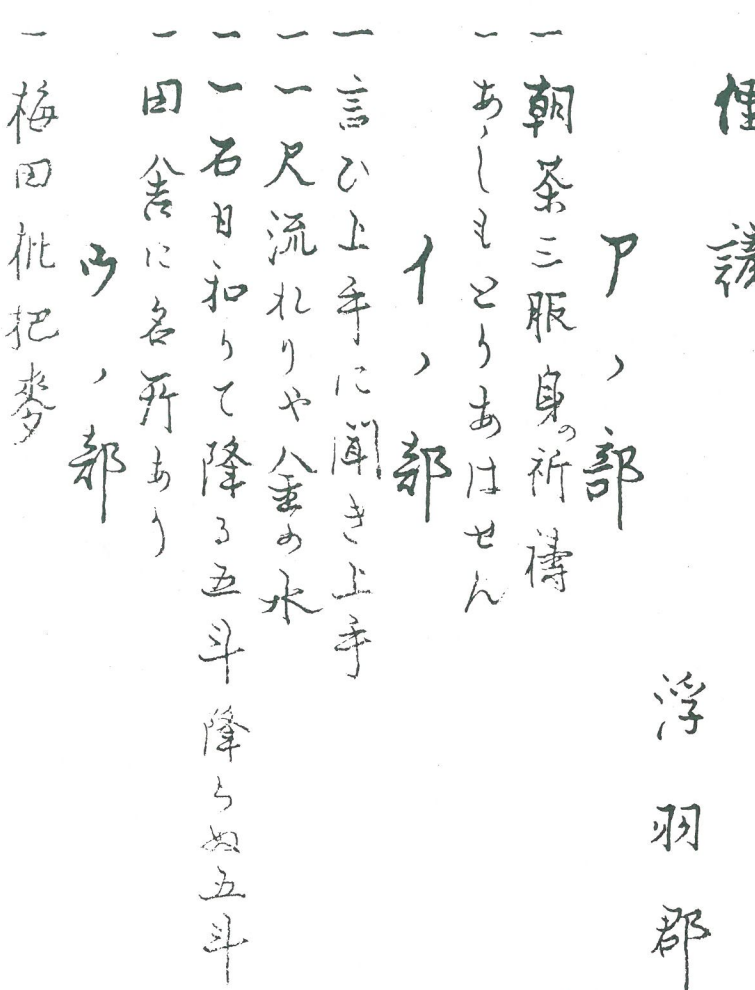 俚諺
浮羽郡
アノ部
一 朝茶三服身の祈禱
一 あしもとりあはせん
イノ部
一 言ひ上手に聞き上手
一 一尺流れりや八重の水
一 一石日和りて降る五斗降らぬ五斗
一 田舎に名所あり
ウノ部
一 梅田枇杷麥